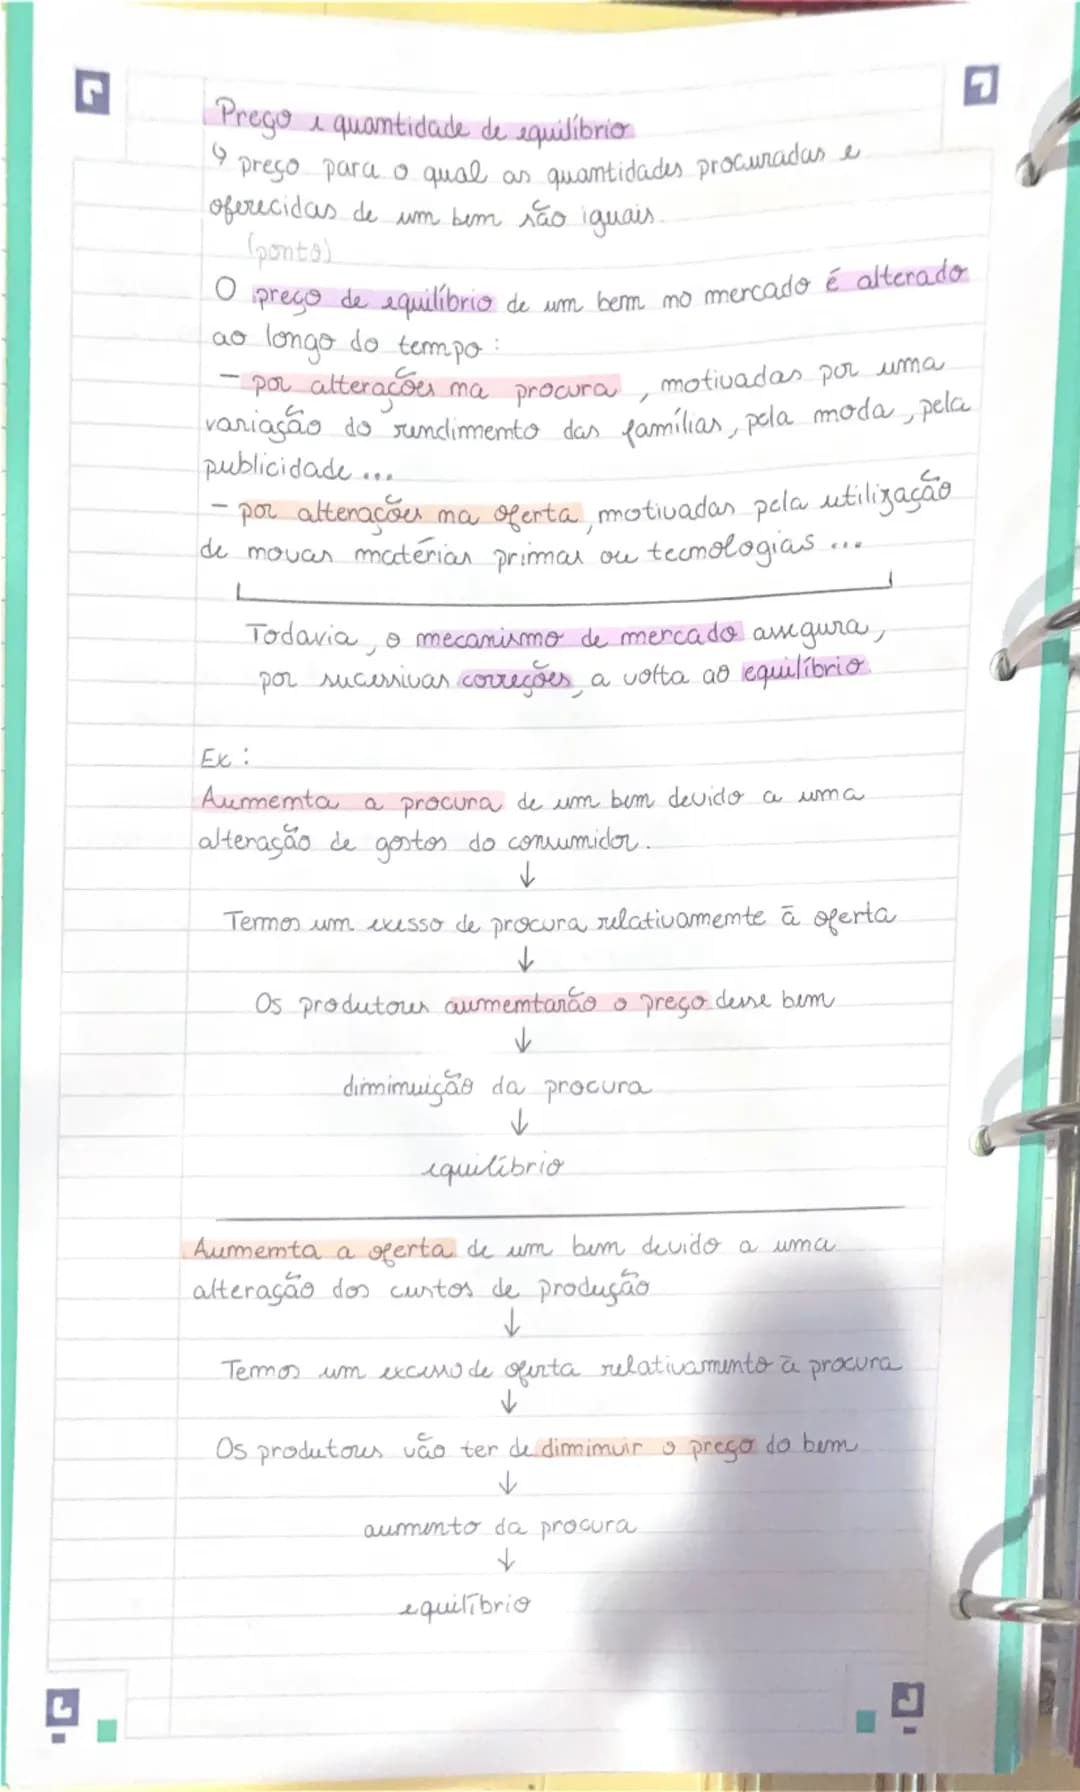 Preço e quantidade de equilíbrio
↳ preço para o qual as quantidades procuradas e
oferecidas de um bem são iguais.
(ponto)
O preço de equilíbrio de um bem no mercado é alterado
ao longo do tempo:
- por alterações na procura, motivadas por uma
variação do rendimento das famílias, pela moda, pela
publicidade...
- por alterações na oferta, motivadas pela utilização
de novas matérias primas ou tecnologias...
Todavia, o mecanismo de mercado assegura,
por sucessivas correções, a volta ao equilíbrio.
Ex:
Aumenta a procura de um bem devido a uma
alteração de gostos do consumidor.
↓
Temos um exesso de procura relativamente à oferta
↓
Os produtores aumentarão o preço desse bem
↓
diminuição da procura
↓
equilíbrio
Aumenta a oferta de um bem devido a uma
alteração dos custos de produção
↓
Temos um excesso de oferta relativamento à procura
↓
Os produtores vão ter de diminuir o preço do bem
↓
aumento da procura
↓
equilíbrio